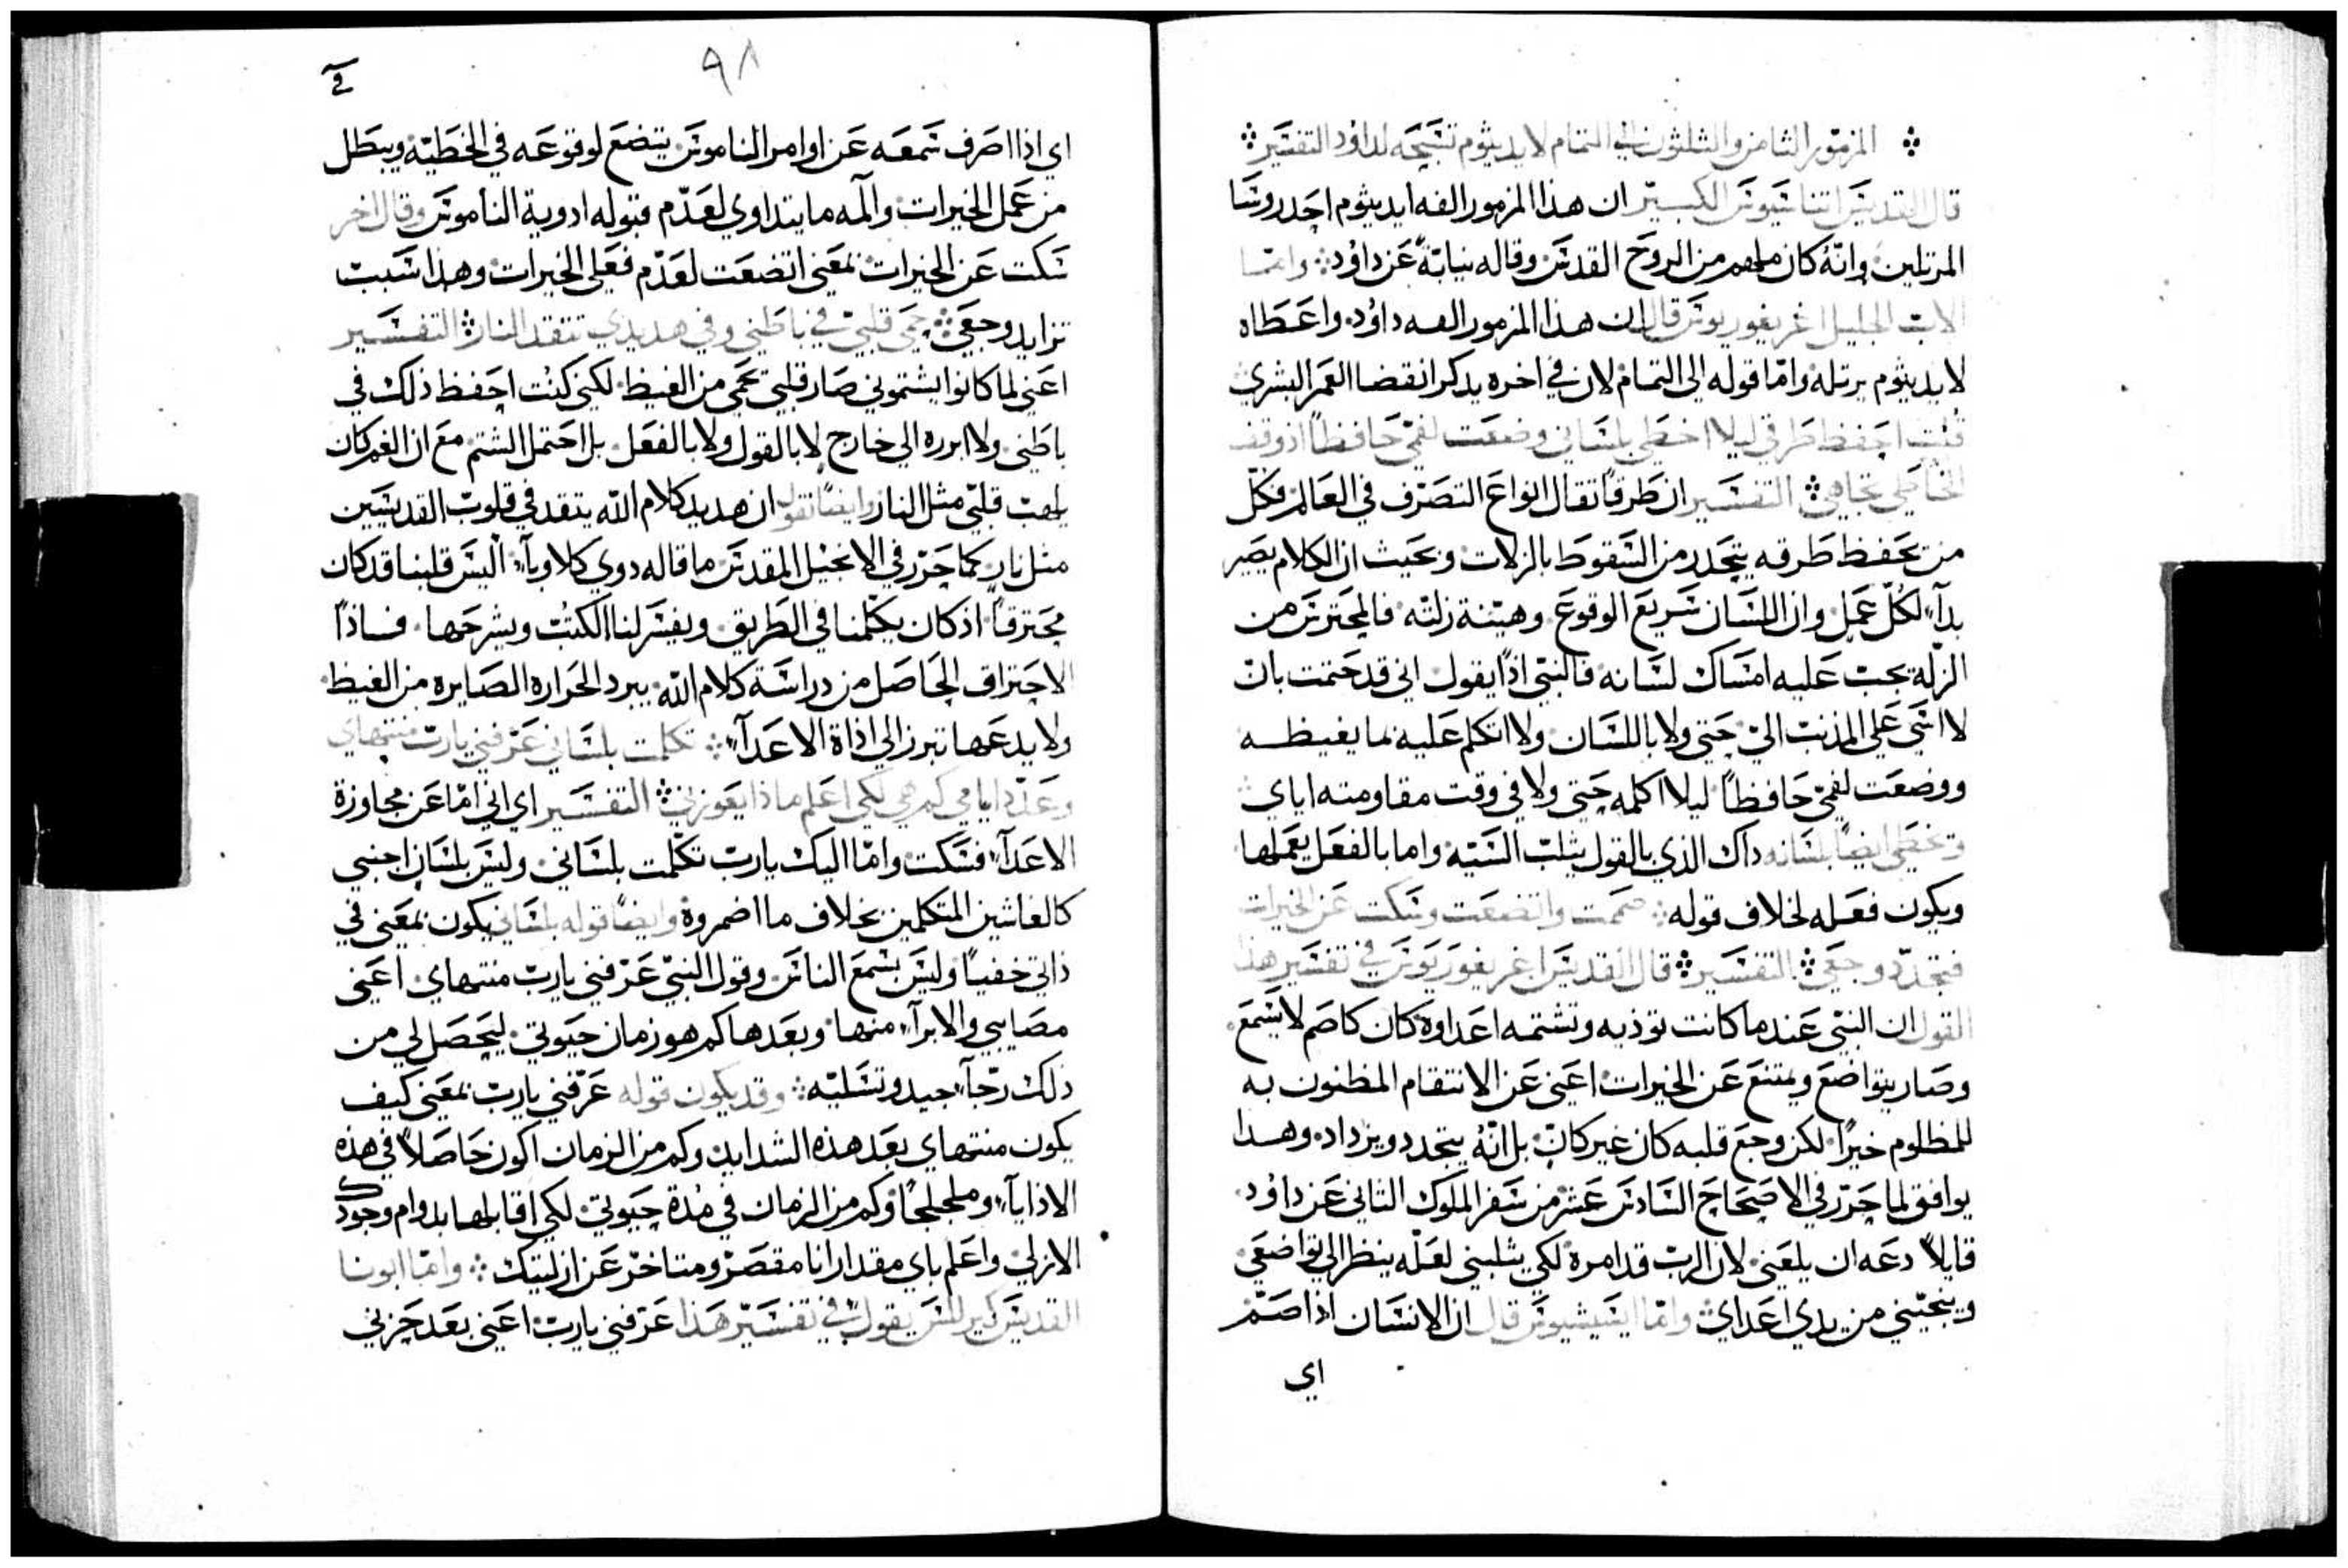 المزمور الثامن والثلثون الي التمام لايديثوم تسبحه لداوُد التفسير
قال القديس اتناسيوس الكبير ان هذا المزمور الفه ايديثوم احد روسا
المرتلين وانّهُ كان ملهم من الروح القدس وقاله نيابةً عن داوُد وامّا
الاب الجليل اغريغوريوس قال ان هذا المزمور الفه داوُد واعطاه
لايديثوم يرتله وامّا قوله الى التمام لان في اخره يدكر انقضا العمر البشري
قلت احفظ طرقي ليلا اخطي بلساني وضعت لفمي حافظاً اذ وقف
الخاطي تجاهي التفسير ان طرقاً تقال انواع التصرّف في العالم فكلّ
من يحفظ طرقه يتحدر من السقوط بالزلات وبحيث ان الكلام يصير
بدآء لكُلّ عمل وان اللسان سريع الوقوع وهيّنة زلته فالمحترس من
الزلّة يجب عليه امساك لسانه فالنبيّ اذًا يقول اني قد حتمت بان
لا اسي على المذنب اليّ حتى ولا باللسان ولا اتكلم عليه بما يغيظه
ووضعت لفميّ حافظاً ليلا اكلمه حتى ولا في وقت مقاومته اياي
وتخطي ايضًا بلسانه داك الذي بالقول يثلب السّيّه واما بالفعل يعملها
ويكون فعله لخلاف قوله صممت واتضعت وسكت عن الخيرات
فتجدّد وجعي التفسير قال القديس اغريغوريوس في تفسير هذا
القول ان النبي عندما كانت توذيه وتشتمه اعداوه كان كاصم لا يسمع
وصار يتواضع ويمتنع عن الخيرات اعني عن الانتقام المظنون به
للمظلوم خيرًا لكن وجع قلبه كان غير كافٍ بل انّهُ يتجدد ويزداد وهدا
يوافق لما حرّر في الاصحاح السادس عشر من سفر الملوك التاني عن داوُد
قايلاً دعه ان يلعني لان الرب قد امره لكي يثلبني لعلّه ينظر الي تواضعي
وينجّيني من يدي اعداي وامّا ايسيشيوس قال ان الانسان اذا صمّ
اي
٩٨
اي اذا اصرف سمعه عن اوامر الناموس يتضع لوقوعه في الخطيّه ويبطل
من عمل الخيرات والمه ما يتداوي لعدّم قبوله ادوية الناموس وقال اخر
سكت عن الخيرات بمعني اتضعت لعدّم فعلي الخيرات وهدا سبب
تزايد وجعي حمي قلبيّ في باطني وفي هديدي تتقد النار التفسير
اعني لما كانوا يشتموني صار قلبي يحمي من الغيظ لكني كنت احفظ ذلك في
باطني ولا ابرره الي خارج لا بالقول ولا بالفعل بل احتمل الشتم مع ان الغم كان
يلهب قلبّي مثل النار وايضًا نقول ان هديد كلام اللّه يتقد في قلوب القديسين
مثل نار كما حرّر في الانجيل المقدس ما قاله دوي كلاوبآ اليس قلبنا قد كان
محترقاً اذ كان يكلّمنا في الطريق ويفسر لنا الكتُب ويشرحها فاذًا
الاحتراق الحاصل من دراسة كلام اللّه يبرد الحراره الصايره من الغيظ
ولا يدعها تبرز الي اذاة الاعدآء تكلمت بلساني عرّفني يارب منتهاي
وعدّد ايامي كم هي لكي اعلم ماذا يعوزني التفسير اي اني امّا عن مجاوزة
الاعدآء فسكت وامّا اليك يارب تكلّمت بلساني وليس بلسانٍ اجنبي
كالغاشين المتكلمين بخلاف ما اضمروه وايضًا قوله بلساني يكون بمعني في
ذاتي خفياً وليس بسمع الناس وقول النبيّ عرّفني ياربّ منتهاي اعني
مصايبي والابرآء منها وبعدها كم هو زمان حيوتي ليحصل لي من
ذلك رجآء جيد وتسليّه وقد يكون قوله عرّفني يارب بمعني كيف
يكون منتهاي بعد هذه الشدايد وكم من الزمان اكون حاصلاً في هذه
الاذايآء وملجلجًا وكم من الزمان في مُدة حيوتي لكي اقابلها بدوام وجودك
الازلي واعلم باي مقدار انا مقصر ومتاخر عن ازليتك وامّا ابونا
القديس كيرللس يقول في تفسير هذا عرّفني يارب اعني بعد حزني